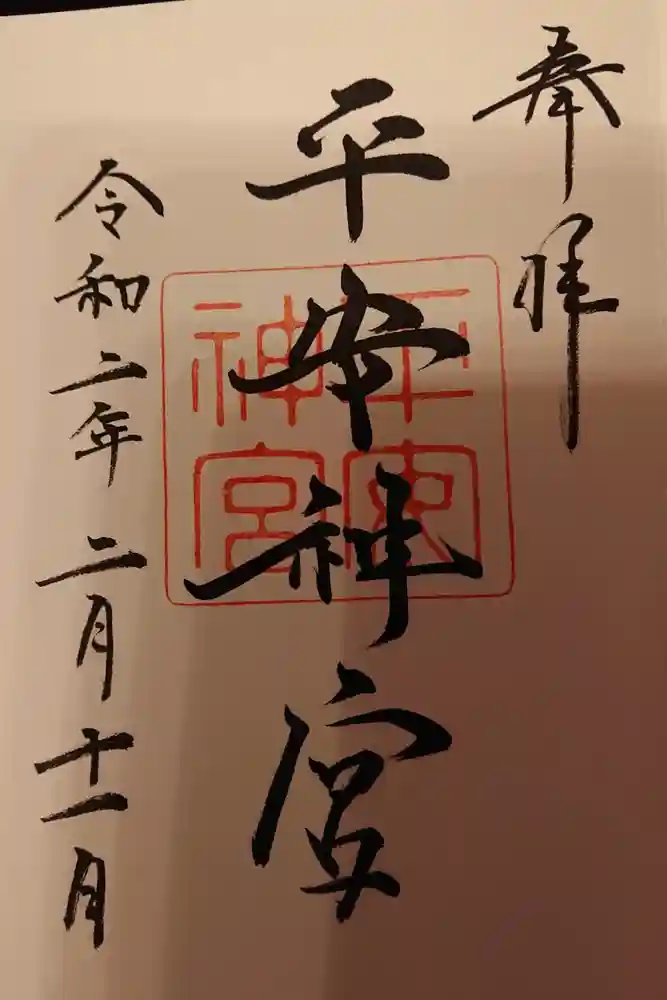 奉拝
平安神宮
平安
神宮
令和二年二月十一日